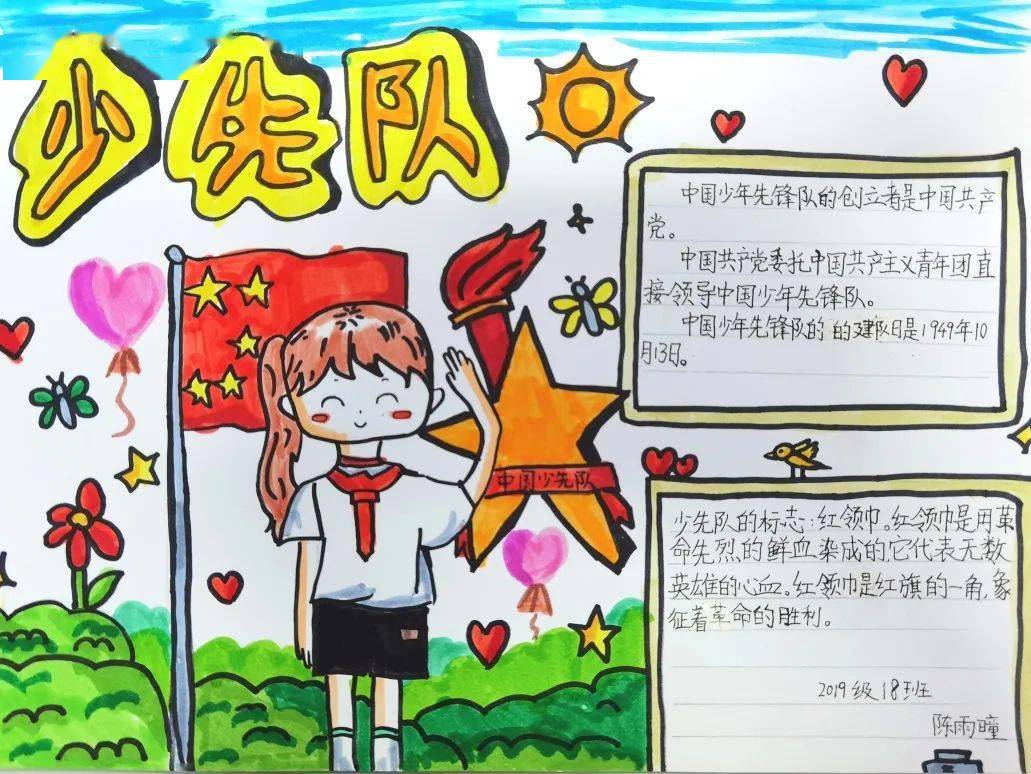 少先队
中国少年先锋队的创立者是中国共产
党。
中国共产党委托中国共产主义青年团直
接领导中国少年先锋队。
中国少年先锋队的 的建队日是1949年10
月13日。
中国少先队
少先队的标志：红领巾。红领巾是用革
命先烈的鲜血染成的，它代表无数
英雄的心血。红领巾是红旗的一角，象
征着革命的胜利。
2019级18班
陈雨曈